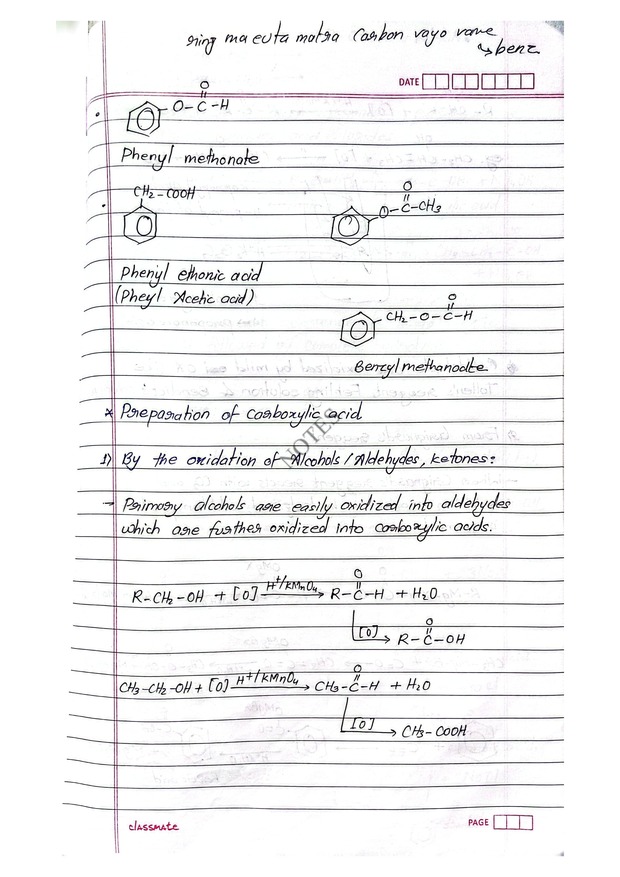 ring ma euta matra Carbon vayo vane
→ benz
DATE
O
O-C-H
Phenyl methonate
CH2-COOH
O
O-C-CH3
Phenyl ethonic acid
(Pheyl Acetic acid)
O
CH2-O-C-H
Benzyl methanoate
* Preparation of Carboxylic acid
NOTES
1) By the oxidation of Alcohols / Aldehydes, ketones:
→ Primary alcohols are easily oxidized into aldehydes
which are further oxidized into carboxylic acids.
O
R-CH2-OH + [O] H+/KMnO4 → R-C-H + H2O
O
[O] → R-C-OH
O
CH3-CH2-OH + [O] H+/KMnO4 → CH3-C-H + H2O
[O] → CH3-COOH
classmate
PAGE